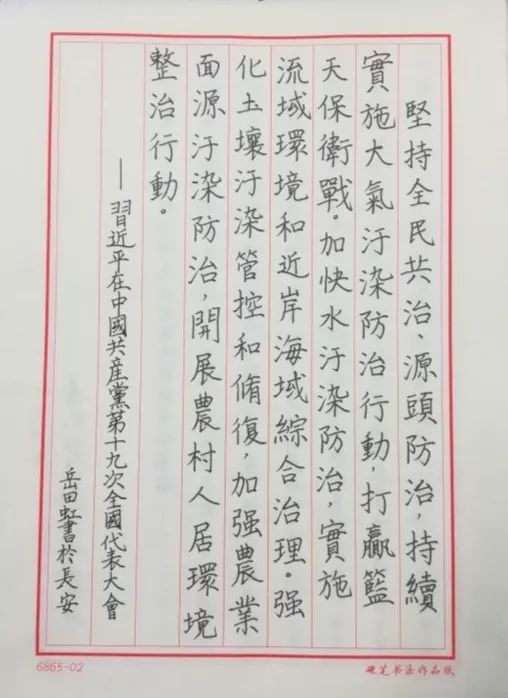 堅持全民共治、源頭防治,持續
實施大氣汙染防治行動,打贏籃
天保衛戰。加快水汙染防治,實施
流域環境和近岸海域綜合治理。强
化土壤汙染管控和脩復,加强農業
面源汙染防治,開展農村人居環境
整治行動。
——習近平在中國共産黨第十九次全國代表大會
岳田虹書於長安
6865-02
硬笔书法作品纸